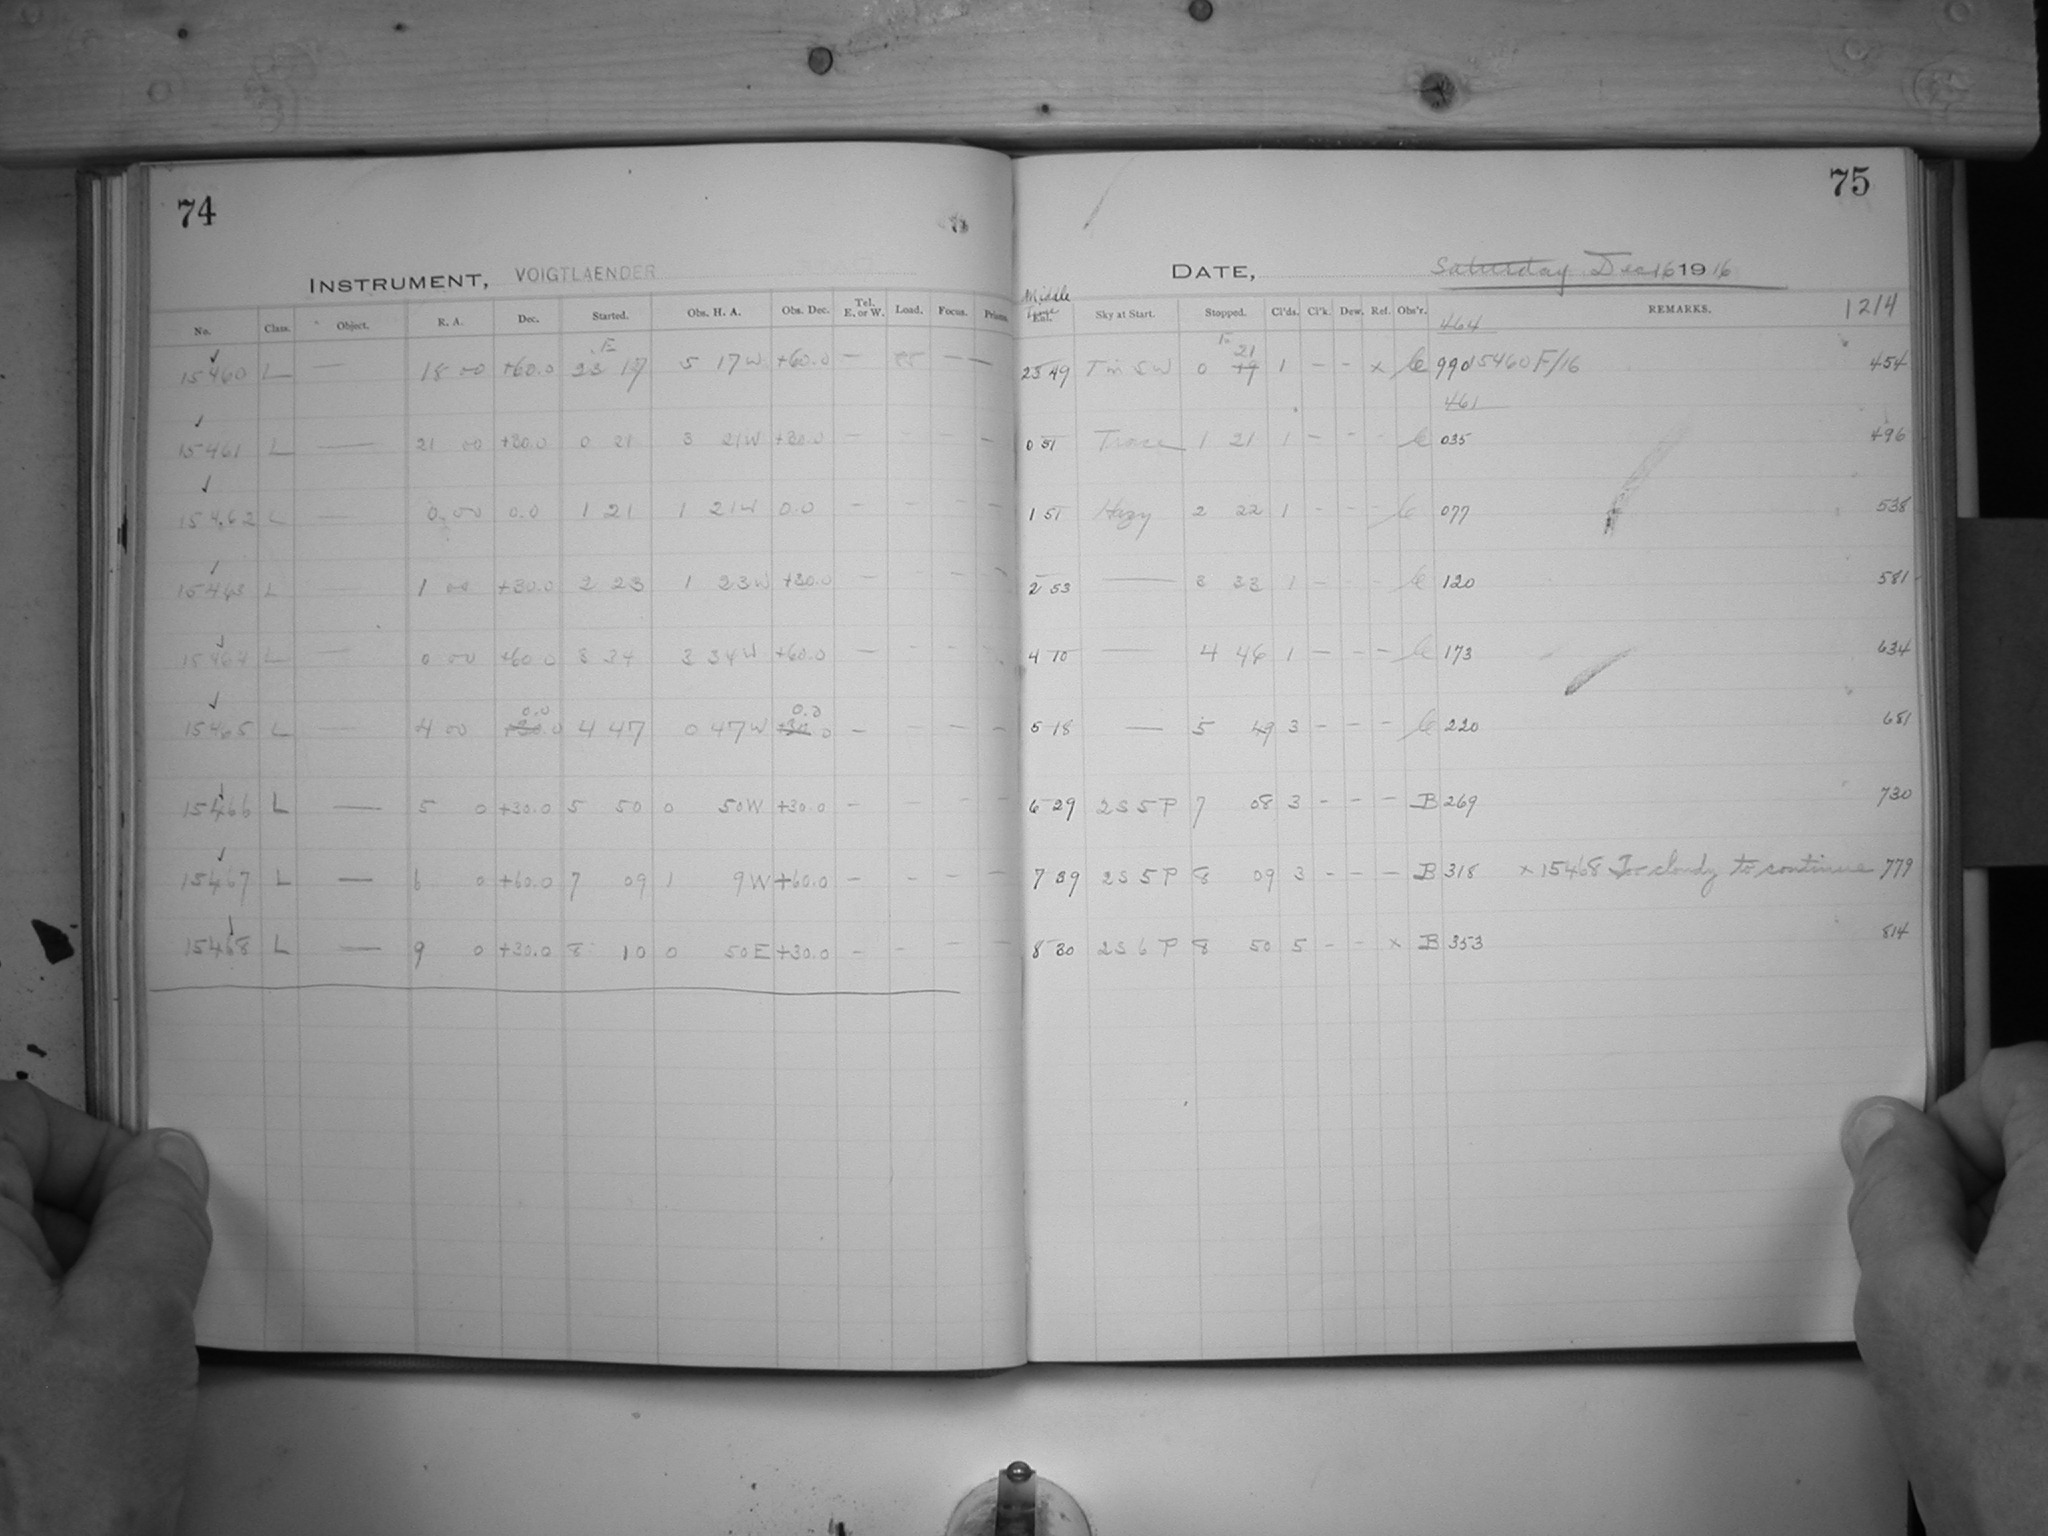 74
INSTRUMENT, VOIGTLAENDER
No. Class. Object. R. A. Dec. Started. Obs. H. A. Obs. Dec. Tel. E. or W. Load. Focus. Prisms.
E
15460 L — 18 00 +60.0 23 17 5 17W +60.0 — — —
15461 L — 21 00 +30.0 0 21 3 21W +30.0 — — — —
15462 L — 0 00 0.0 1 21 1 21W 0.0 — — — —
15463 L — 1 00 +30.0 2 23 1 23W +30.0 — — — —
15464 L — 0 00 +60.0 3 34 3 34W +60.0 — — — —
0.0 0.0
15465 L — 4 00 +30.0 4 47 0 47W +30.0 — — — —
15466 L — 5 0 +30.0 5 50 0 50W +30.0 — — — —
15467 L — 6 0 +60.0 7 09 1 9W +60.0 — — — —
15468 L — 9 0 +30.0 8 10 0 50E +30.0 — — — —
75
DATE, Saturday Dec 16 1916
Middle Time
Ext. Sky at Start. Stopped. Cl'ds. Cl'k. Dew. Ref. Obs'r. REMARKS. 1214
464
21
23 49 T in SW 0 19 1 — — x 990 5460 F/16 454
461
0 51 Trace 1 21 1 — — — 035 496
1 51 Hazy 2 22 1 — — — 077 538
2 53 — 3 33 1 — — — 120 581
4 10 — 4 46 1 — — — 173 634
5 18 — 5 49 3 — — — 220 681
6 29 2S5P 7 08 3 — — — B 269 730
7 39 2S5P 8 09 3 — — — B 318 x 15468 Too cloudy to continue 779
8 30 2S6P 8 50 5 — — x B 353 814